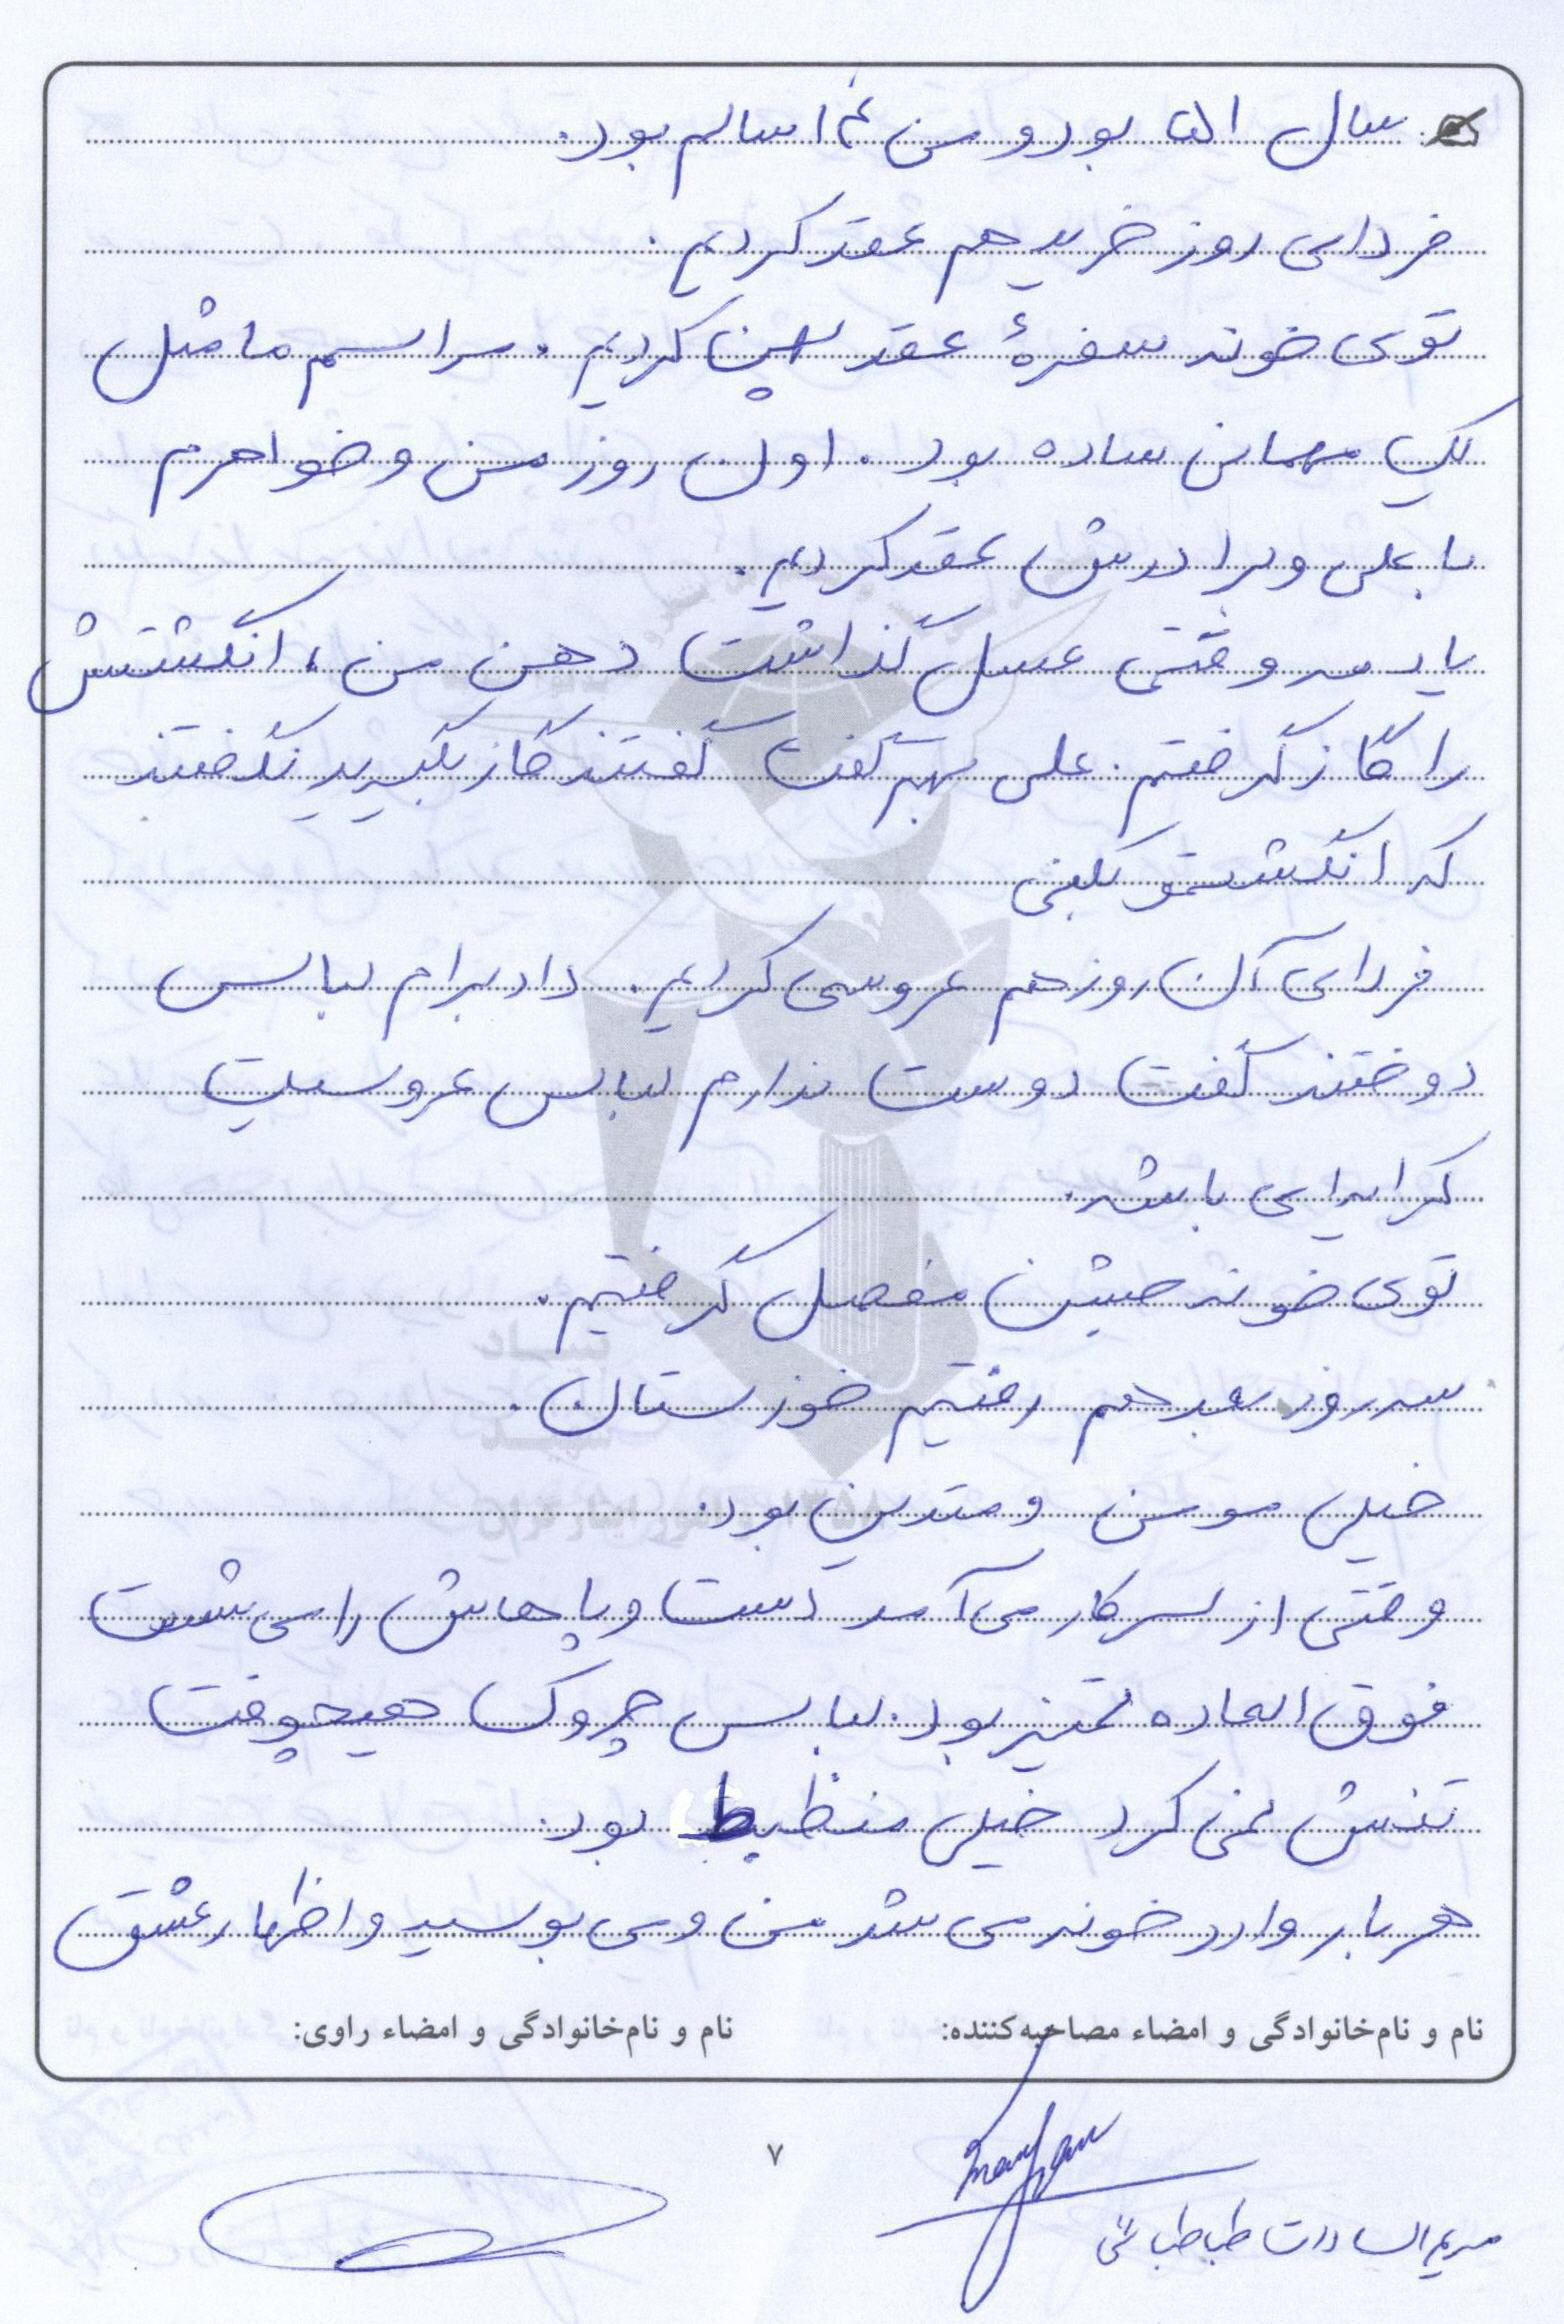 سال ۵۱ بود و من ۱۴ سالم بود.
فردای روز خرید هم عقد کردیم.
توی خونه سفرهٔ عقد پهن کردیم. مراسم ما مثل
یک مهمانی ساده بود. اون روز من و خواهرم
با علی و برادرش عقد کردیم.
یادمه وقتی عسل گذاشت دهن من، انگشتش
را گاز گرفتم. علی بهم گفت گفتند گاز بگیرید نگفتند
که انگشتمو بکنی
فردای آن روز هم عروسی کردیم. داد برام لباس
دوختند گفت دوست ندارم لباس عروسیت
کرایه‌ایی باشه.
توی خونه جشن مفصل گرفتیم.
سه روز بعد هم رفتیم خوزستان.
خیلی مومن و متدین بود.
وقتی از سر کار می‌آمد دست و پاهاش را می‌شست
فوق العاده تمیز بود. لباس چروک هیچوقت
تنش نمی‌کرد خیلی منظبط بود.
هر بار وارد خونه می‌شد من و می‌بوسید و اظهار عشق
نام و نام‌خانوادگی و امضاء مصاحبه‌کننده: نام و نام‌خانوادگی و امضاء راوی:
۷
مریم السادات طباطبائی